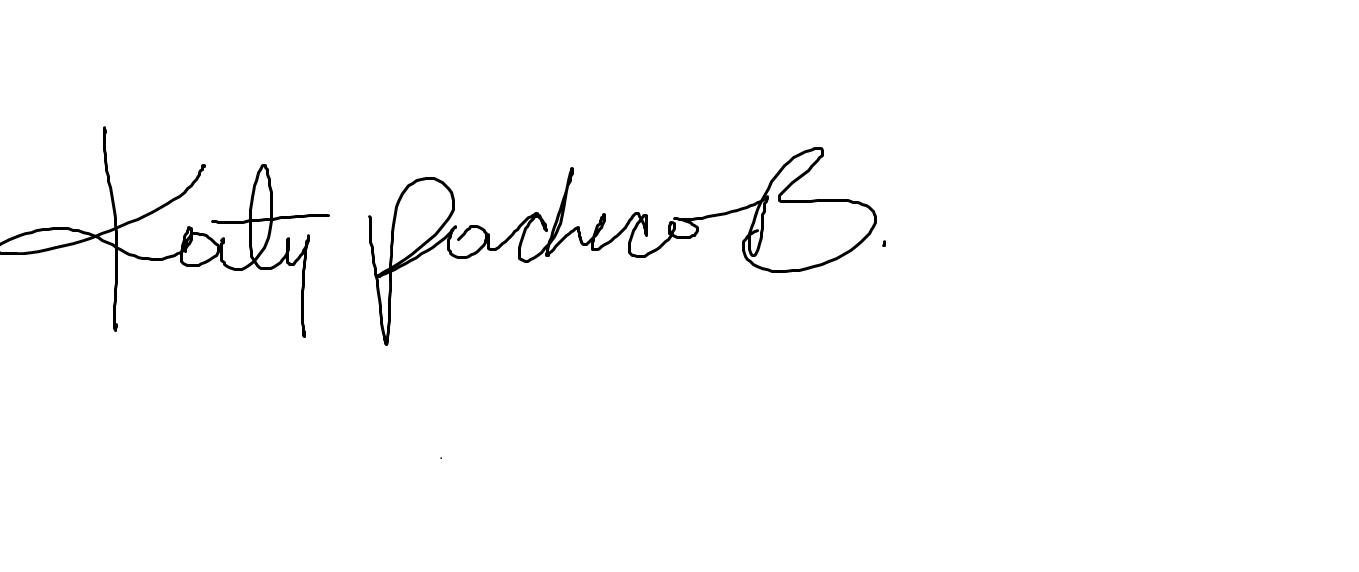 Katy Pacheco B.